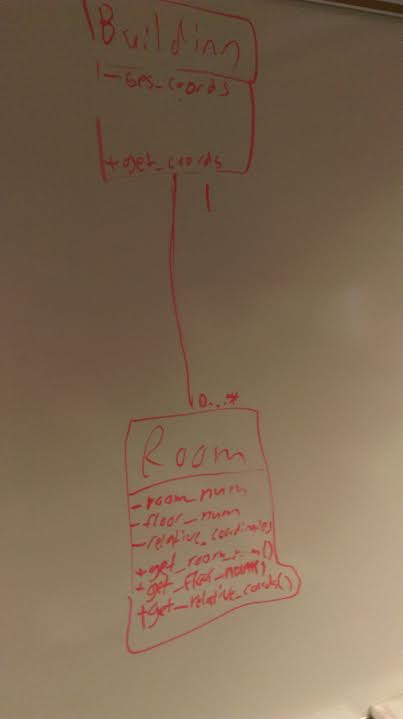 Building
-GPS_coords
+get_coords
1
0...*
Room
-room_num
-floor_num
-relative_coordinates
+get_room_num()
+get_floor_num()
+get_relative_coords()